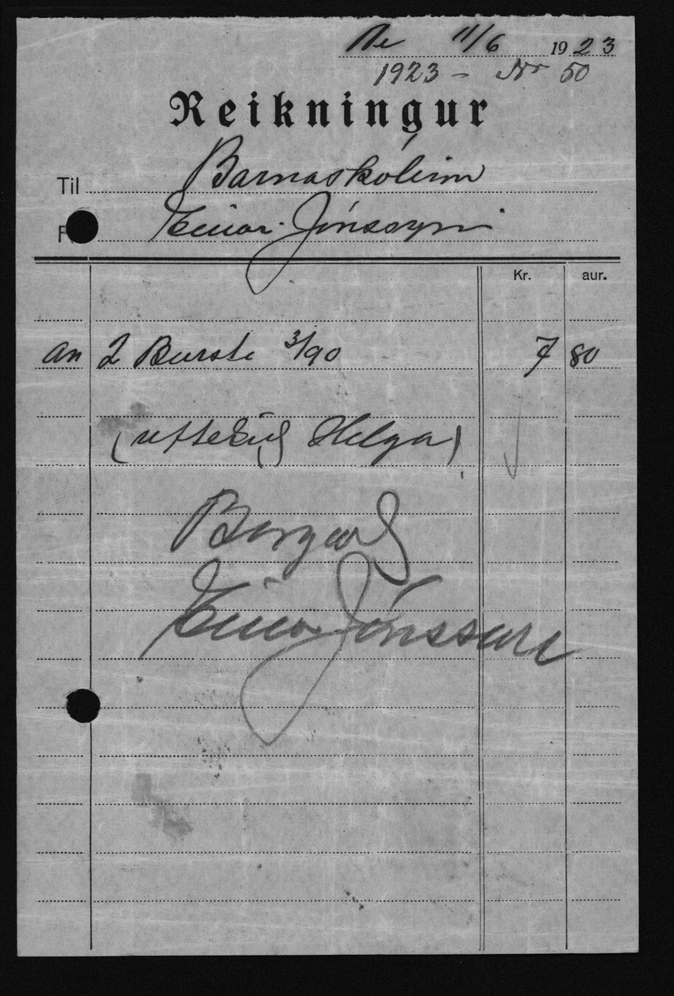 Ve 11/6 1923
1923 - Nr 50
Reikningur
Til Barnaskólinn
F Einar Jónssyni
Kr. aur.
an 2 Burste 3/90 7 80
( Helga)
Borgað
Einar Jónsson